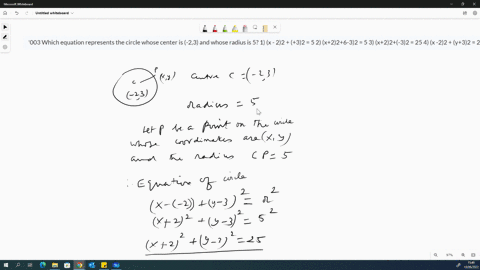 Untitled whiteboard
'003 Which equation represents the circle whose center is (-2,3) and whose radius is 5? 1) (x - 2)2 + (+3)2 = 5 2) (x+2)2+6-3)2 = 5 3) (x+2)2+(-3)2 = 25 4) (x -2)2 + (y+3)2 = 2
P
(x,y)
C
(-2,3)
centre C = (-2,3)
radius = 5
Let P be a point on the circle
whose coordinates are (x,y)
and the radius CP = 5
∴ Equation of circle
(x-(-2))² + (y-3)² = r²
(x+2)² + (y-3)² = 5²
(x+2)² + (y-3)² = 25